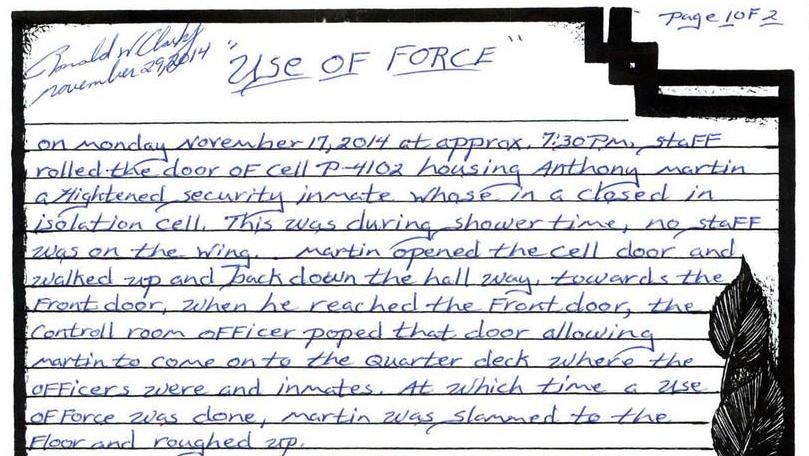 Page 1 OF 2
Ronald W Clark Jr
november 29, 2014
"Use OF FORCE"
on monday november 17, 2014 at approx. 7:30 Pm. staFF
rolled the door oF cell P-4102 housing Anthony martin
a Hightened security inmate whose in a closed in
isolation cell. This was during shower time, no staFF
was on the wing. martin opened the cell door and
walked up and back down the hall way, towards the
Front door, when he reached the Front door, the
Controll room oFFicer poped that door allowing
martin to come on to the Quarter deck where the
oFFicers were and inmates. At which time a Use
oF Force was done, martin was slammed to the
Floor and roughed up.